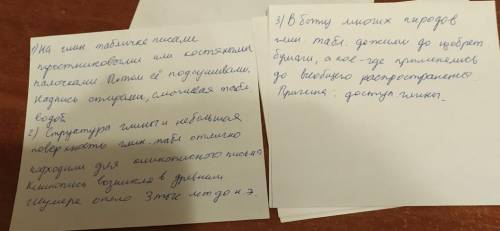 1) На глин. табличке писали
тростниковыми или костяными
палочками. Потом её подсушивали.
Надпись стирали, смачивая табл
водой
2) Структура глины и небольшая
поверхность глин. табл отлично
подходили для клинописного письма
Клинопись возникла в древнем
Шумере около 3 тыс лет до н. э.
3) В быту многих народов
глин. табл. дожили до изобрет
бумаги, а кое-где применялись
до всеобщего распространения
Причина: доступ. глины.